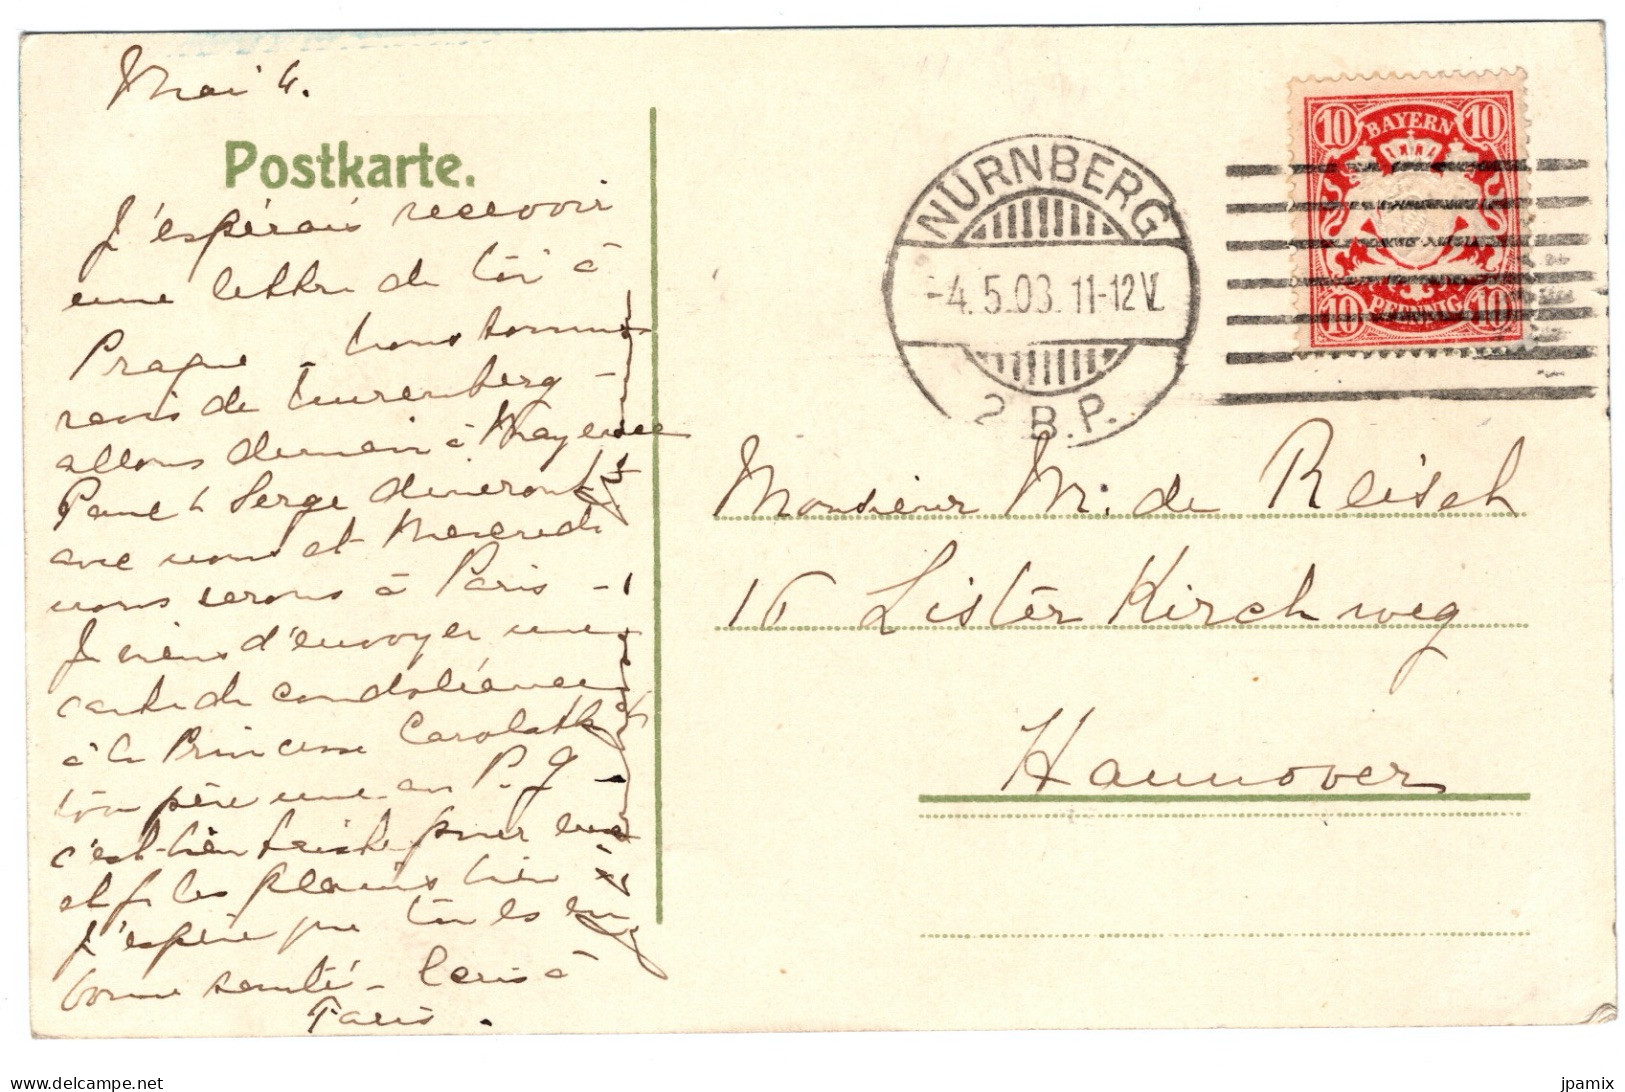 Mai 4.
Postkarte.
J'espérais recevoir
une lettre de toi à
Prague - nous sommes
venus de Nuremberg -
allons demain à Mayence
Paul & Serge dineront
avec nous et Mercredi
nous serons à Paris -
Je viens d'envoyer une
carte de condoléances
à la Princesse Carolath
ton père une en P. J
c'est bien triste pour eux
et je les plains bien
J'espère que tu es en
bonne santé - écris à
Paris.
NÜRNBERG
-4.5.03. 11-12 V.
2 B.P.
10 BAYERN 10
10 PFENNIG 10
Monsieur M. de Reisch
16 Lister Kirchweg
Hannover
jpamix